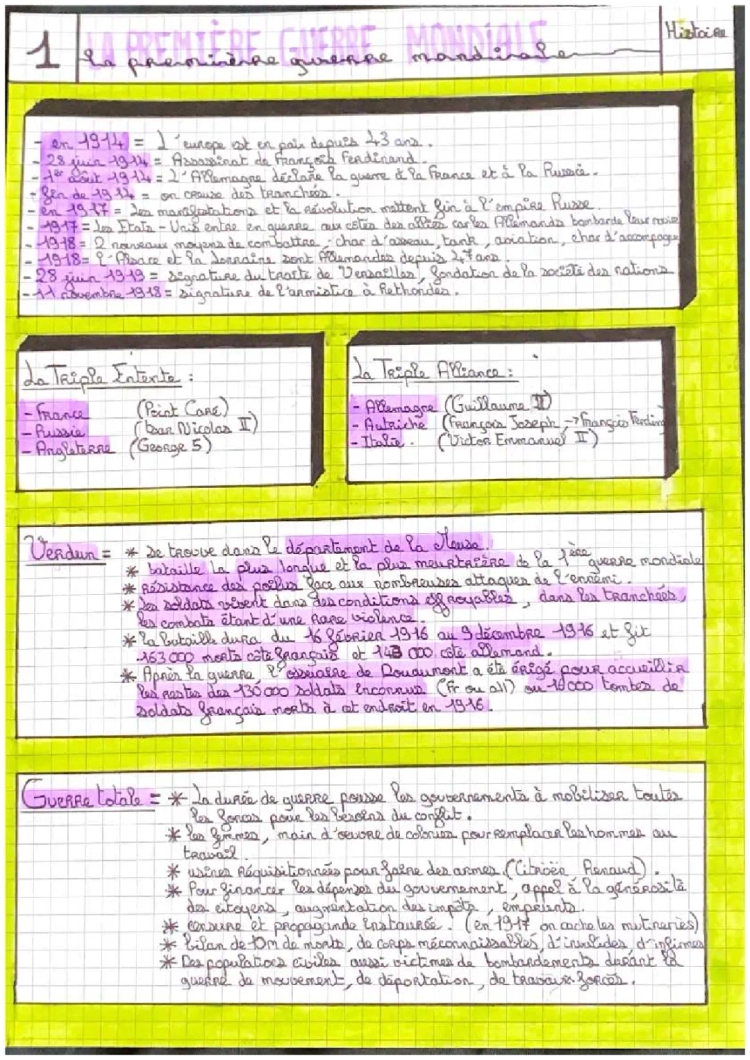 1
LA PREMIÈRE GUERRE MONDIALE
La premirère guerre mondirale
Histoire
- en 1914 = L'europe est en paix depuis 43 ans.
- 28 juin 1914 = Assassinat de François Ferdinand.
- 1er août 1914 = L'Allemagne déclare la guerre à la France et à la Russie.
- fin de 1914 = on creuse des tranchées.
- en 1917 = Les manifestations et la révolution mettent fin à l'empire Russe.
- 1917 = Les Etats-Unis entre en guerre aux côtés des alliés car les Allemands bombarde leur navire
- 1918 = 2 nouveaux moyens de combattre : char d'assau, tank, aviation, char d'accompagne
- 1918 = L'Alsace et la Lorraine sont Allemandes depuis 47 ans.
- 28 juin 1919 = signature du tracte de Versailles, fondation de la société des nations
- 11 novembre 1918 = signature de l'armistice à Rethondes.
La Triple Entente :
- France (Point Caré)
- Russie (tsar Nicolas II)
- Angleterre (George 5)
La Triple Alliance :
- Allemagne (Guillaume II)
- Autriche (François Joseph -> François Ferdin
- Italie. (Victor Emmanuel II)
Verdun = * se trouve dans le département de la Meuse
* bataille la plus longue et la plus meurtrière de la 1ère guerre mondiale
* Résistance des poilus face aux nombreuses attaques de l'ennemi.
* Les soldats vivent dans des conditions effroyables, dans les tranchées,
les combats étant d'une rare violence.
* La bataille dura du 16 février 1916 au 9 décembre 1916 et fit
163 000 morts côté français et 143 000 côté allemand.
* Après la guerre, l'ossuaire de Douaumont a été érigé pour accueillir
les restes des 130 000 soldats inconnus (Fr ou all) ou 16 000 tombes de
soldats français morts à cet endroit en 1916.
Guerre totale = * La durée de guerre pousse les gouvernements à mobiliser toutes
les forces pour les besoins du conflit.
* les femmes, main d'oeuvre de colonies pour remplacer les hommes au
travail.
* usines réquisitionnées pour faire des armes. (Citroën, Renaud).
* Pour financer les dépenses du gouvernement, appel à la générosité
des citoyens, augmentation des impôts, emprunts.
* censure et propagande instaurée. (en 1917, on cache les mutineries)
* bilan de 10m de morts, de corps méconnaissables, d'invalides, d'infirmes
* Des populations civiles aussi victimes de bombardements durant la
guerre de mouvement, de déportation, de travaux forcés.